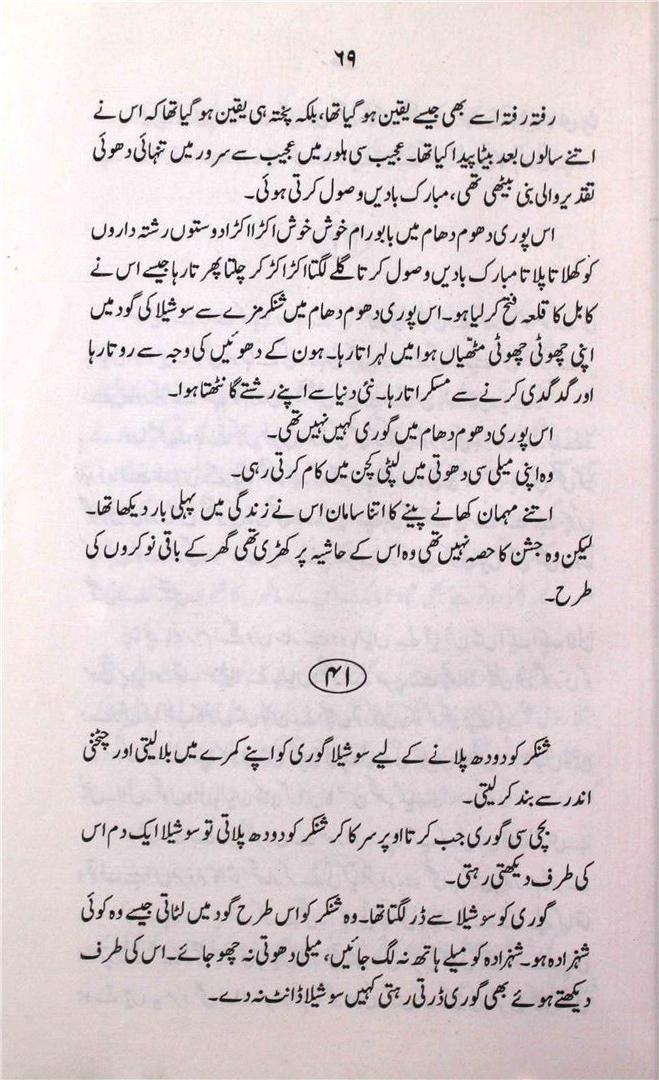 ۶۹
رفتہ رفتہ اسے بھی جیسے یقین ہو گیا تھا، بلکہ پختہ ہی یقین ہو گیا تھا کہ اس نے
اتنے سالوں بعد بیٹا پیدا کیا تھا۔ عجیب سی ہلور میں عجیب سے سرور میں تنہائی دھوئی
تقدیر والی بنی بیٹھی تھی، مبارک بادیں وصول کرتی ہوئی۔
اس پوری دھوم دھام میں بابو رام خوش خوش اکڑا اکڑا دوستوں رشتہ داروں
کو کھلاتا پلاتا مبارک بادیں وصول کرتا گلے لگتا اکڑ اکڑ کر چلتا پھرتا رہا جیسے اس نے
کابل کا قلعہ فتح کر لیا ہو۔ اس پوری دھوم دھام میں شنکر مزے سے سوشیلا کی گود میں
اپنی چھوٹی چھوٹی مٹھیاں ہوا میں لہراتا رہا۔ ہون کے دھوئیں کی وجہ سے روتا رہا
اور گدگدی کرنے سے مسکراتا رہا۔ نئی دنیا سے اپنے رشتے گانٹھتا ہوا۔
اس پوری دھوم دھام میں گوری کہیں نہیں تھی۔
وہ اپنی میلی سی دھوتی میں لپٹی کچن میں کام کرتی رہی۔
اتنے مہمان کھانے پینے کا اتنا سامان اس نے زندگی میں پہلی بار دیکھا تھا۔
لیکن وہ جشن کا حصہ نہیں تھی وہ اس کے حاشیہ پر کھڑی تھی گھر کے باقی نوکروں کی
طرح۔
۴۱
شنکر کو دودھ پلانے کے لیے سوشیلا گوری کو اپنے کمرے میں بلا لیتی اور چٹخنی
اندر سے بند کر لیتی۔
بچی سی گوری جب کرتا اوپر سرکا کر شنکر کو دودھ پلاتی تو سوشیلا ایک دم اس
کی طرف دیکھتی رہتی۔
گوری کو سوشیلا سے ڈر لگتا تھا۔ وہ شنکر کو اس طرح گود میں لٹاتی جیسے وہ کوئی
شہزادہ ہو۔ شہزادہ کو میلے ہاتھ نہ لگ جائیں، میلی دھوتی نہ چھو جائے۔ اس کی طرف
دیکھتے ہوئے بھی گوری ڈرتی رہتی کہیں سوشیلا ڈانٹ نہ دے۔